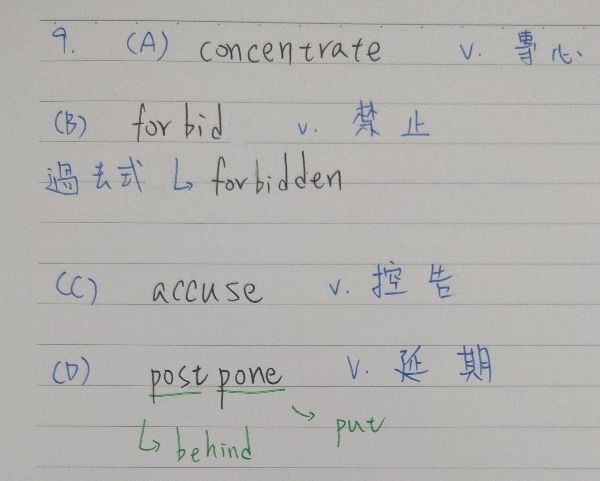 9. (A) concentrate v. 專心
(B) forbid v. 禁止
過去式 ↳ forbidden
(C) accuse v. 控告
(D) postpone v. 延期
↳ behind ↘ put